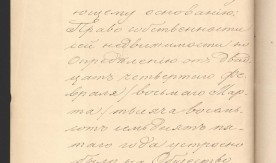 ющему основанію:
Право собственности
сей недвижимости по
опредѣленію отъ двад
цать четвертаго Фе
враля / восьмаго Мар
та / тысяча восемь
сотъ семьдесятъ пя
таго года устроено
было на Общество